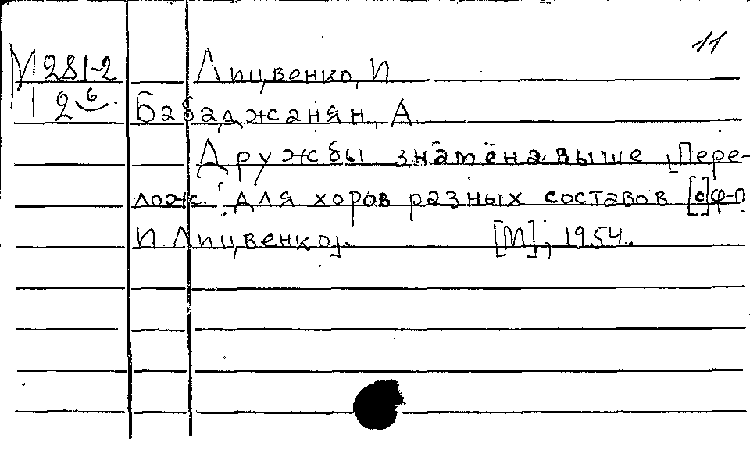 11
М 281-2 Лицвенко, И.
Бабаджанян, А.
Дружбы знамёна выше [Пере-
лож. для хоров разных составов [с]ф-п
И. Лицвенко]. [М], 1954.